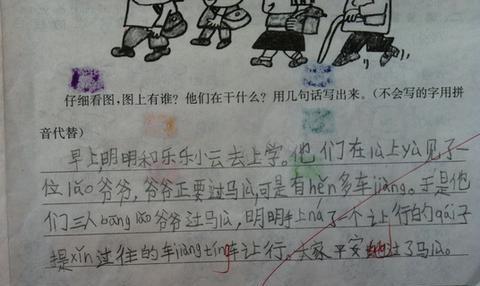 仔细看图,图上有谁?他们在干什么?用几句话写出来。(不会写的字用拼
音代替)
早上,明明和乐乐小云去上学。他们在lù上yù见了一
位lǎo爷爷,爷爷正要过马lù,可是有hěn多车liàng。于是他
们三人bāng lǎo爷爷过马lù,明明手上ná了一个让行的gāi子
提xǐn过往的车liàng tíng车让行。大家平安地过了马lù。